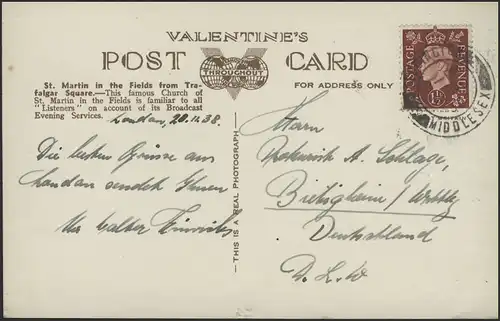 VALENTINE'S
POST CARD
THROUGHOUT
FOR ADDRESS ONLY
St. Martin in the Fields from Tra-
falgar Square.—This famous Church of
St. Martin in the Fields is familiar to all
"Listeners" on account of its Broadcast
Evening Services.
London, 20.11.38.
Die besten Grüsse aus
London sendet Ihnen
Ihr Walter
THIS IS A REAL PHOTOGRAPH
POSTAGE REVENUE
MIDDLESEX
Herrn
A. Schlage,
Bietigheim / Württbg
Deutschland